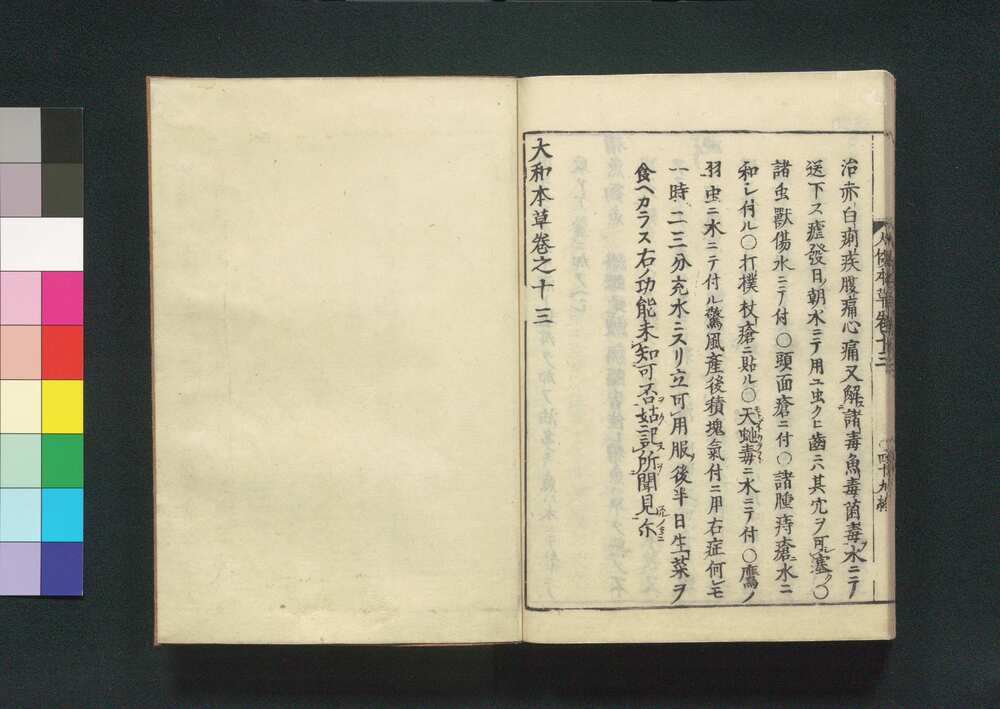 大和本草卷十三
四十九終
治赤白痢疾腹痛心痛又解諸毒魚毒菌毒水ニテ
送下ス瘧發日ノ朝水ニテ用ユ虫クヒ歯ニハ其穴ヲ可塞○
諸虫獸傷水ニテ付○頭面瘡ニ付○諸腫痔瘡水ニ
和シ付ル○打撲杖瘡ニ貼ル○天虵毒ニ水ニテ付○鷹ノ
羽虫ニ水ニテ付ル驚風產後積塊氣付ニ用右症何レモ
一時二三分充水ニスリ立可用服後半日生菜ヲ
食ヘカラス右ノ功能未知可否姑記所聞見尓
大和本草卷之十三